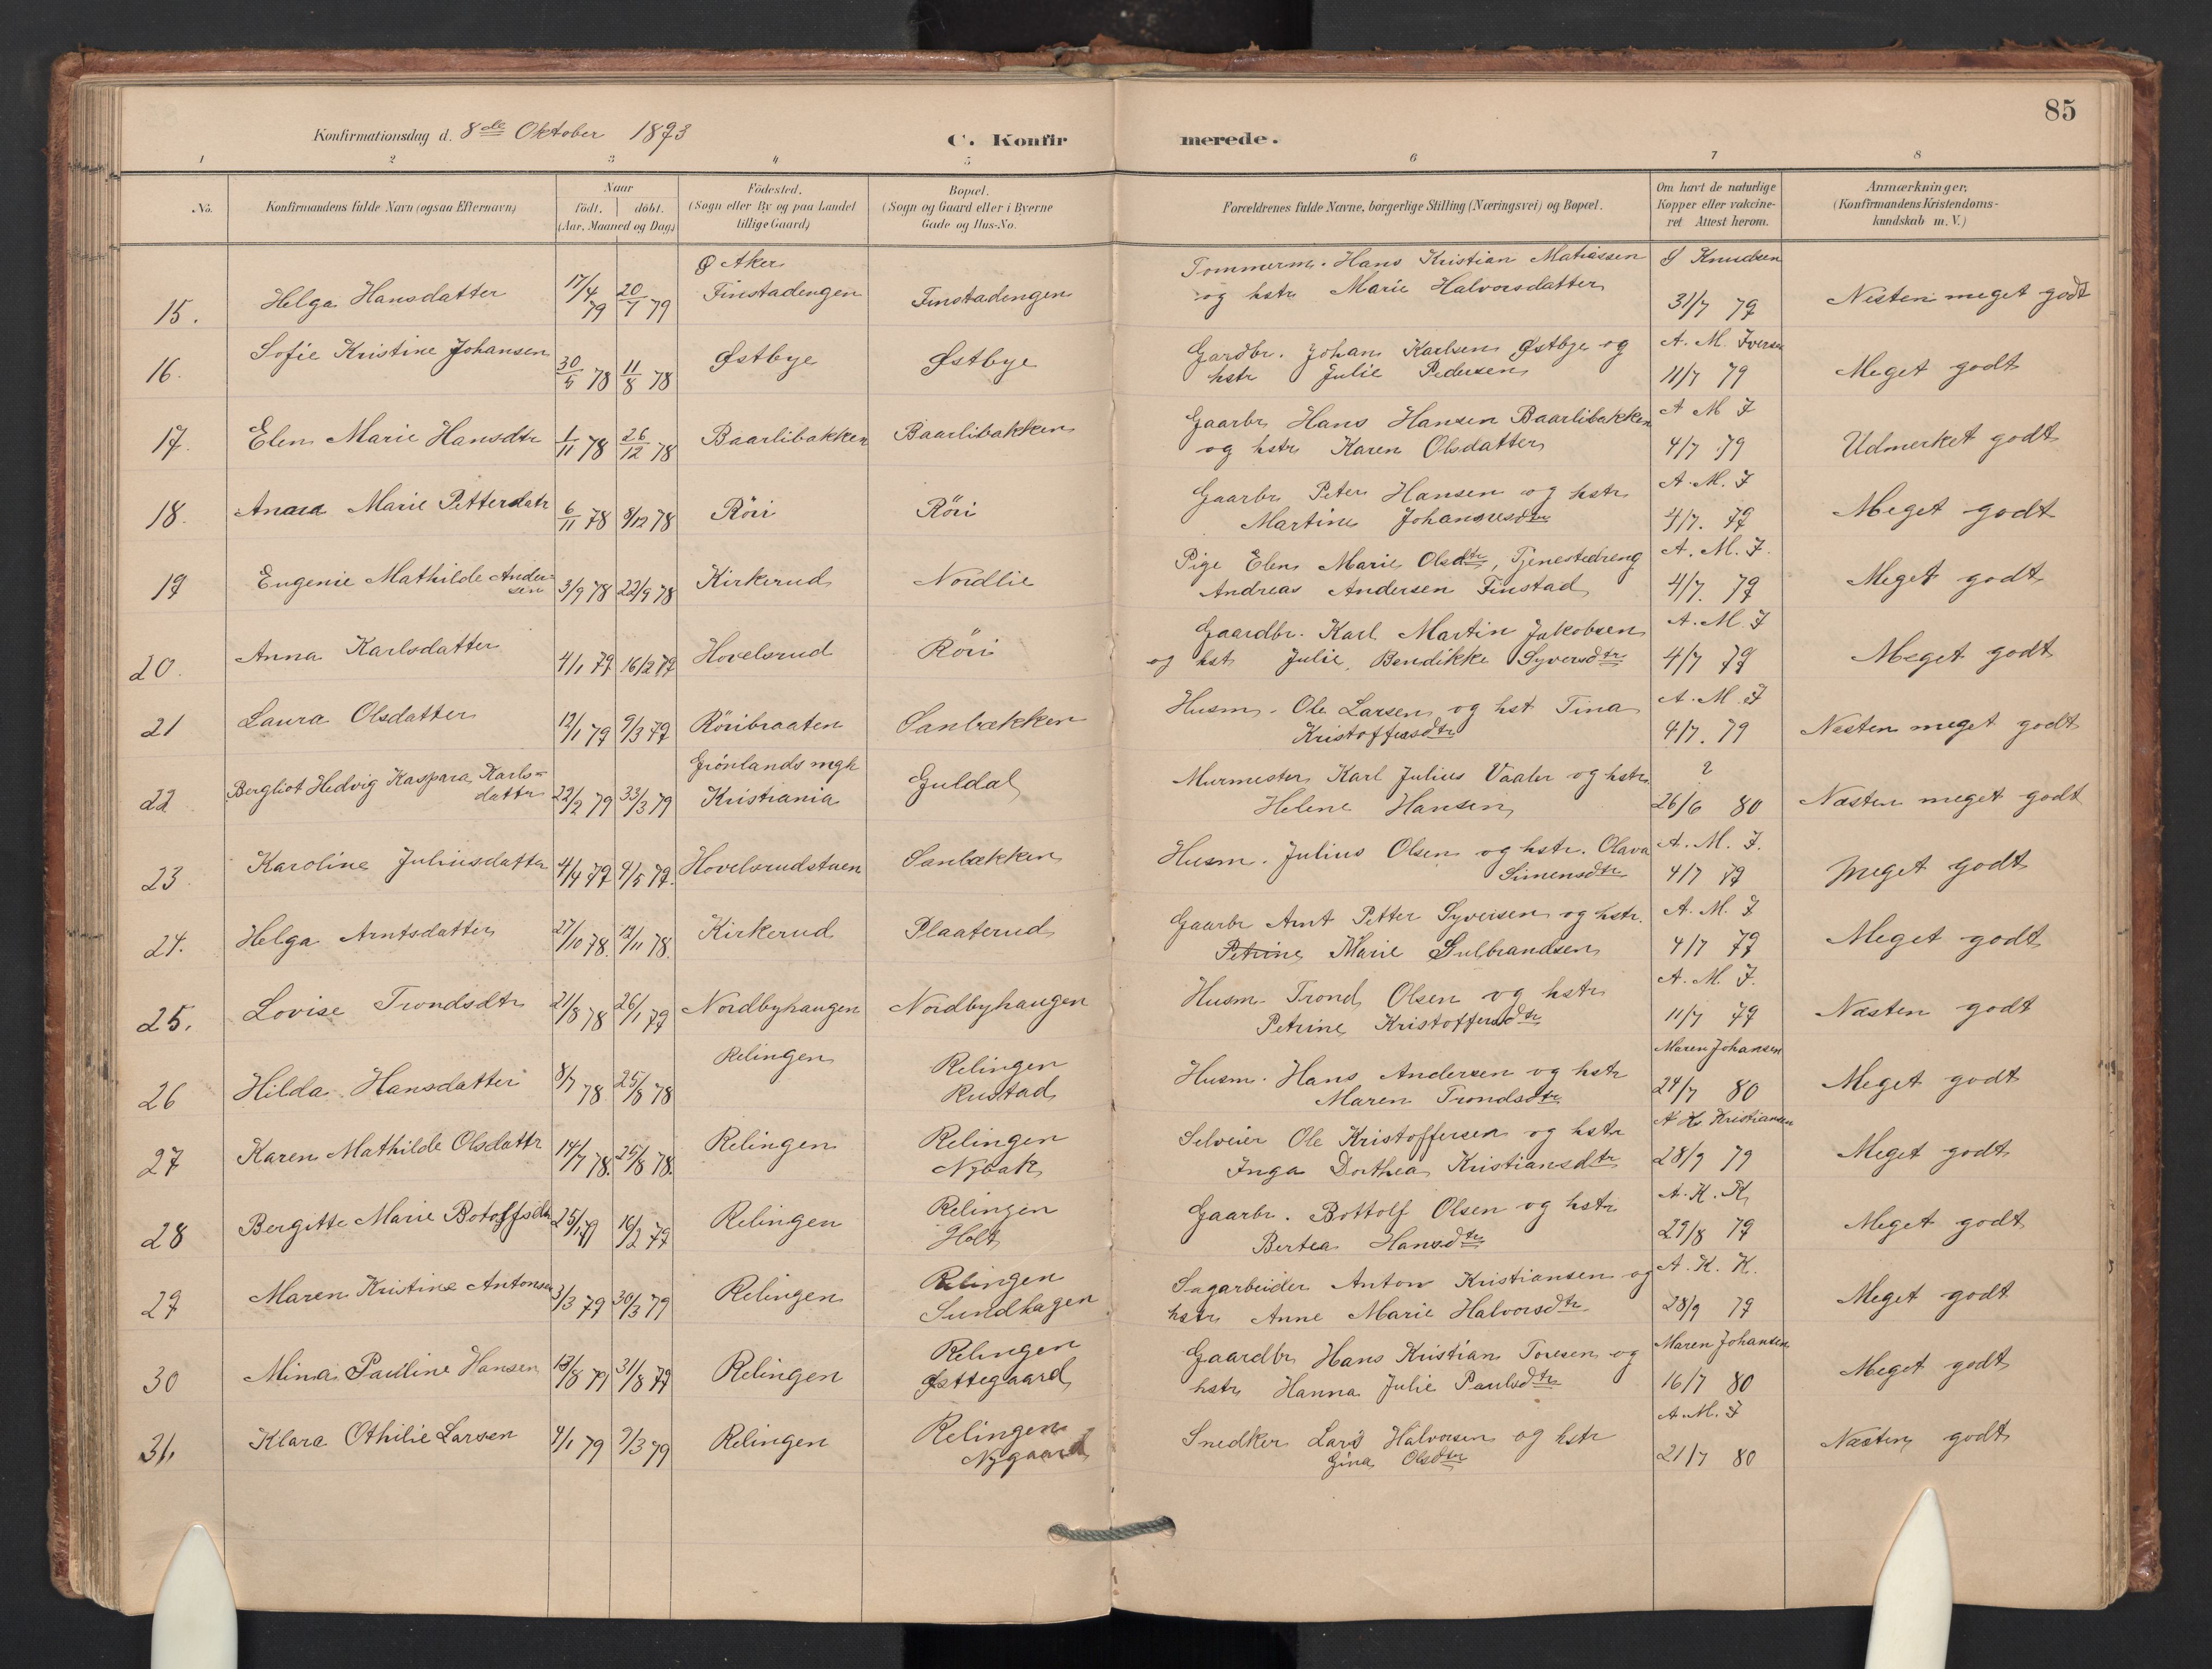 85
Konfirmationsdag d. 8de Oktober 1893
C. Konfirmerede.
1 2 3 4 5 6 7 8
No.
Konfirmandens fulde Navn (ogsaa Efternavn)
Naar
födt. döbt.
(Aar, Maaned og Dag)
Födested.
(Sogn eller By og paa Landet
tillige Gaard)
Bopæl.
(Sogn og Gaard eller i Byerne
Gade og Hus-No.
Forældrenes fulde Navne, borgerlige Stilling (Næringsvei) og Bopæl.
Om havt de naturlige
Kopper eller vakcine-
ret Attest herom.
Anmærkninger,
(Konfirmandens Kristendoms-
kundskab m. V.)
Ø Aker
15. Helga Hansdatter 17/4 79 20/7 79 Finstadengen Finstadengen
Tommerm. Hans Kristian Matiassen
og hstr Marie Halvorsdatter
Knudsen
31/7 79
Nesten meget godt
16. Sofie Kristine Johansen 30/5 78 11/8 78 Østbye Østbye
Gardbr. Johan Karlsen Østbye og
hstr Julie Pedersen
A. M. Iversen
11/7 79
Meget godt
17. Elen Marie Hansdtr 1/11 78 26/12 78 Baarlibakken Baarlibakken
Gaarbr Hans Hansen Baarlibakken
og hstr Karen Olsdatter
A M I
4/7 79
Udmerket godt
18. Anna Marie Petterdatr 6/11 78 8/12 78 Röri Röri
Gaarbr Peter Hansen og hstr
Martine Johannesdtr
A. M. I
4/7. 79
Meget godt
19 Eugenie Mathilde Ander-
sen
3/9 78 22/9 78 Kirkerud Nordlie
Pige Elen Marie Olsdtr, Tjenestedreng
Andreas Andersen Finstad
A. M. I.
4/7. 79
Meget godt
20. Anna Karlsdatter 4/1 79 16/2 79 Hovelsrud Röri
Gaardbr. Karl Martin Jakobsen
og hst Julie Bendikke Syversdtr
A. M I
4/7 79
Meget godt
21 Laura Olsdatter 12/1 79 9/3 79 Röribraaten Sanbækken
Husm. Ole Larsen og hst Tina
Kristoffersdtr
A. M. I
4/7. 79
Nesten meget godt
22 Bergliot Hedvig Kaspara Karls-
datter
22/2 79 33/3 79
Grönlands mgh
Kristiania
Guldal
Murmester Karl Julius Vaaler og hstr
Helene Hansen
?
26/6 80
Næsten meget godt
23. Karoline Juliusdatter 4/4 79 4/5 79. Hovelsrudstuen Sanbækken
Husm. Julius Olsen og hstr. Olava
Simensdtr
A. M. I.
4/7 79
meget godt
24. Helga Arntsdatter 27/10 78. /11 78. Kirkerud Plaaterud
Gaarbr Arnt Petter Syversen og hstr.
Petrine Marie Gulbrandsen
A. M. I
4/7 79
Meget godt
25. Lovise Trondsdtr 21/8 78 26/1 79 Nordbyhaugen Nordbyhaugen
Husm. Trond Olsen og hstr
Petrine Kristoffersdtr
A. M. I.
11/7 79
Næsten godt
26 Hilda Hansdatter 8/7 78 25/8 78 Relingen
Relingen
Rustad
Husm. Hans Andersen og hstr
Maren Trondsdtr
Maren Johansen
24/7 80
Meget godt
27 Karen Mathilde Olsdattr 14/7 78. 25/8 78. Relingen
Relingen
Nybak
Selveier Ole Kristoffersen og hstr
Inga Dorthea Kristiansdtr
A K Kristiansen
28/9 79
Meget godt
28 Bergitte Marie Botolfsdtr 25/1 79 16/2 79 Relingen
Relingen
Holt
Gaarbr. Bottolf Olsen og hstr
Bertea Hansdtr
A. K. K
29/8 79
Meget godt
29 Maren Kristine Antonsen 3/3 79 30/3 79 Relingen
Relingen
Sundhagen
Sagarbeider Anton Kristiansen og
hstr Anne Marie Halvorsdtr
A. K. K.
28/9 79
Meget godt
30 Mina Pauline Hansen 13/8 79 31/8 79 Relingen
Relingen
Østtegaard
Gaardbr Hans Kristian Toresen og
hstr Hanna Julie Paulsdtr
Maren Johansen
16/7 80
Meget godt
31. Klara Othilie Larsen 4/1 79 9/3 79 Relingen
Relingen
Nygaard
Snedker Lars Halvorsen og hstr
Gina Olsdtr
A. M. I
21/7 80
Næsten godt